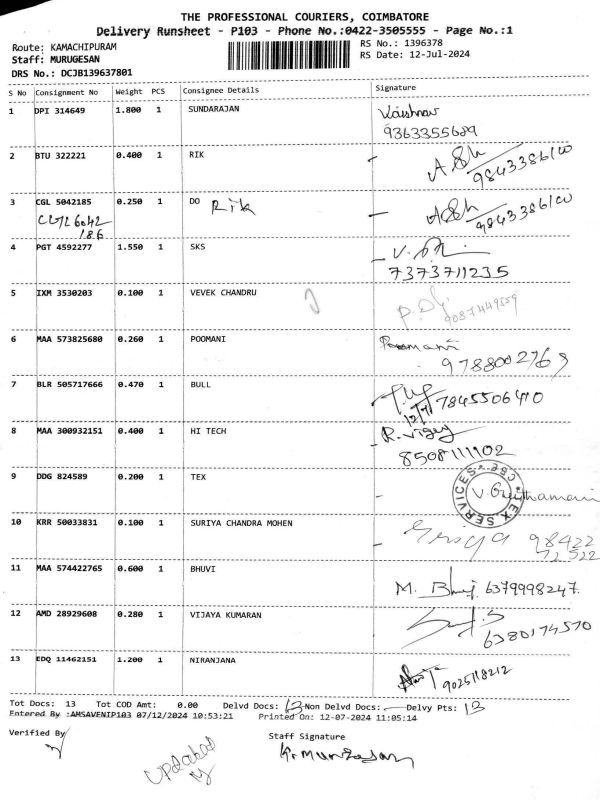 THE PROFESSIONAL COURIERS, COIMBATORE
Delivery Runsheet - P103 - Phone No.:0422-3505555 - Page No.:1
Route: KAMACHIPURAM RS No.: 1396378
Staff: MURUGESAN RS Date: 12-Jul-2024
DRS No.: DCJB139637801
S No Consignment No Weight PCS Consignee Details Signature
1 DPI 314649 1.800 1 SUNDARAJAN Vaishnav
9363355689
2 BTU 322221 0.400 1 RIK
3 CGL 5042185 0.250 1 DO Rik
186
4 PGT 4592277 1.550 1 SKS
7373711235
5 IXM 3530203 0.100 1 VEVEK CHANDRU
9087449559
6 MAA 573825680 0.260 1 POOMANI Poomani
9788002769
7 BLR 505717666 0.470 1 BULL 7845506410
8 MAA 300932151 0.400 1 HI TECH R. Vijay
8508111102
9 DDG 824589 0.200 1 TEX
CBE TEX SERVICES
10 KRR 50033831 0.100 1 SURIYA CHANDRA MOHEN 98422
72522
11 MAA 574422765 0.600 1 BHUVI M. Bhuvi 6379998247
12 AMD 28929608 0.280 1 VIJAYA KUMARAN
6380174570
13 EDQ 11462151 1.200 1 NIRANJANA 9025118212
Tot Docs: 13 Tot COD Amt: 0.00 Delvd Docs: 13 Non Delvd Docs: — Delvy Pts: 13
Entered By :AMSAVENIP103 07/12/2024 10:53:21 Printed On: 12-07-2024 11:05:14
Verified By Staff Signature
Updated
K. Murugesan